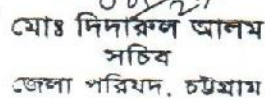 মোঃ দিদারুল আলম
সচিব
জেলা পরিষদ, চট্টগ্রাম